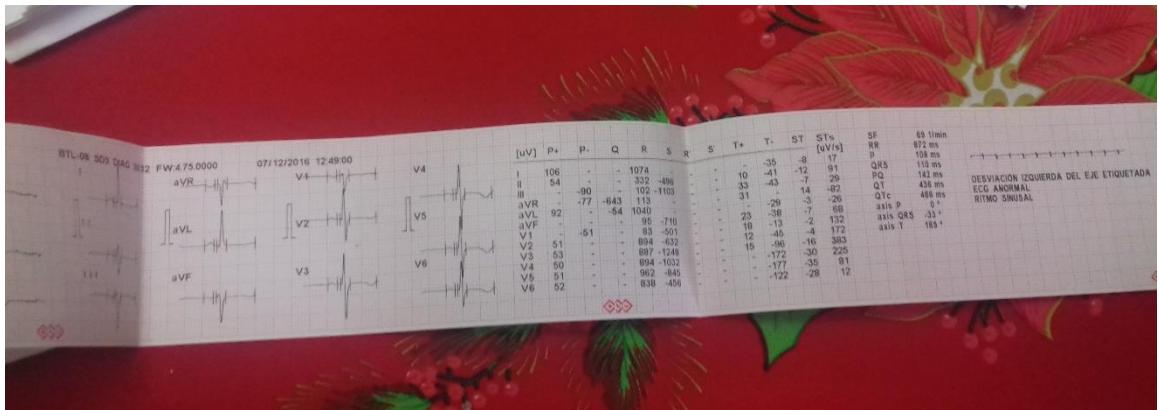 BTL-08 SD3 DIAG 3632 FW:4.75.0000 07/12/2016 12:49:00
I
II
III
aVR
aVL
aVF
V1
V2
V3
V4
V5
V6
[uV] P+ P- Q R S R' S' T+ T- ST STs [uV/s]
I 106 - - 1074 - - - - -35 -8 17
II 54 - - 332 -496 - - 10 -41 -12 91
III - -90 - 102 -1103 - - 33 -43 -7 29
aVR - -77 -643 113 - - - 31 - 14 -82
aVL 92 - -54 1040 - - - - -29 -3 -26
aVF - - - 95 -716 - - 23 -38 -7 68
V1 - -51 - 83 -501 - - 18 -13 -2 132
V2 51 - - 894 -632 - - 12 -45 -4 172
V3 53 - - 887 -1248 - - 15 -96 -16 383
V4 50 - - 894 -1032 - - - -172 -30 225
V5 51 - - 962 -845 - - - -177 -35 81
V6 52 - - 838 -456 - - - -122 -28 12
SF 69 1/min
RR 872 ms
P 108 ms
QRS 110 ms
PQ 142 ms
QT 436 ms
QTc 466 ms
axis P 0 °
axis QRS -33 °
axis T 169 °
DESVIACIÓN IZQUIERDA DEL EJE ETIQUETADA
ECG ANORMAL
RITMO SINUSAL